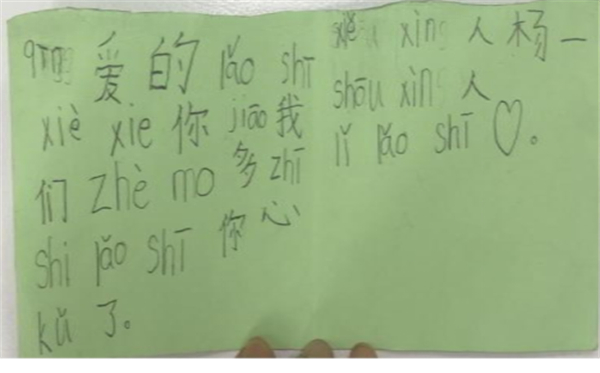 qīng 爱 的 lǎo shī
xiè xie 你 jiāo 我
们 zhè mo 多 zhī
shi lǎo shī 你 心
kǔ 了。
xiě xìng 人 杨 一
shōu xìn 人
lǐ lǎo shī ♡。